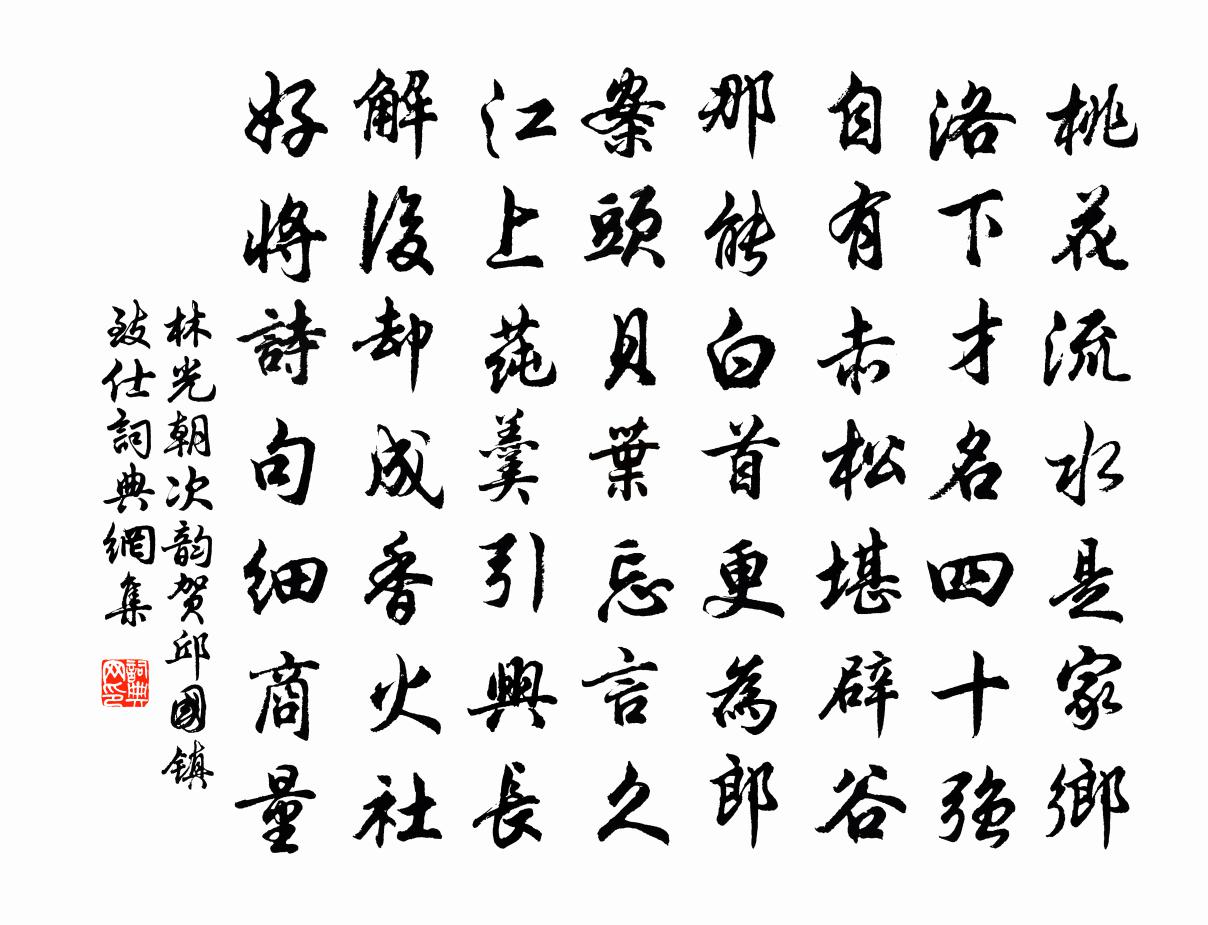 桃花流水是家鄉
洛下才名四十強
自有赤松堪辟谷
那能白首更為郎
案頭貝葉忘言久
江上蒓羹引興長
解後却成香火社
好將詩句細商量
林光朝次韵賀邱國鎮
致仕詞典網集
詞典
网印